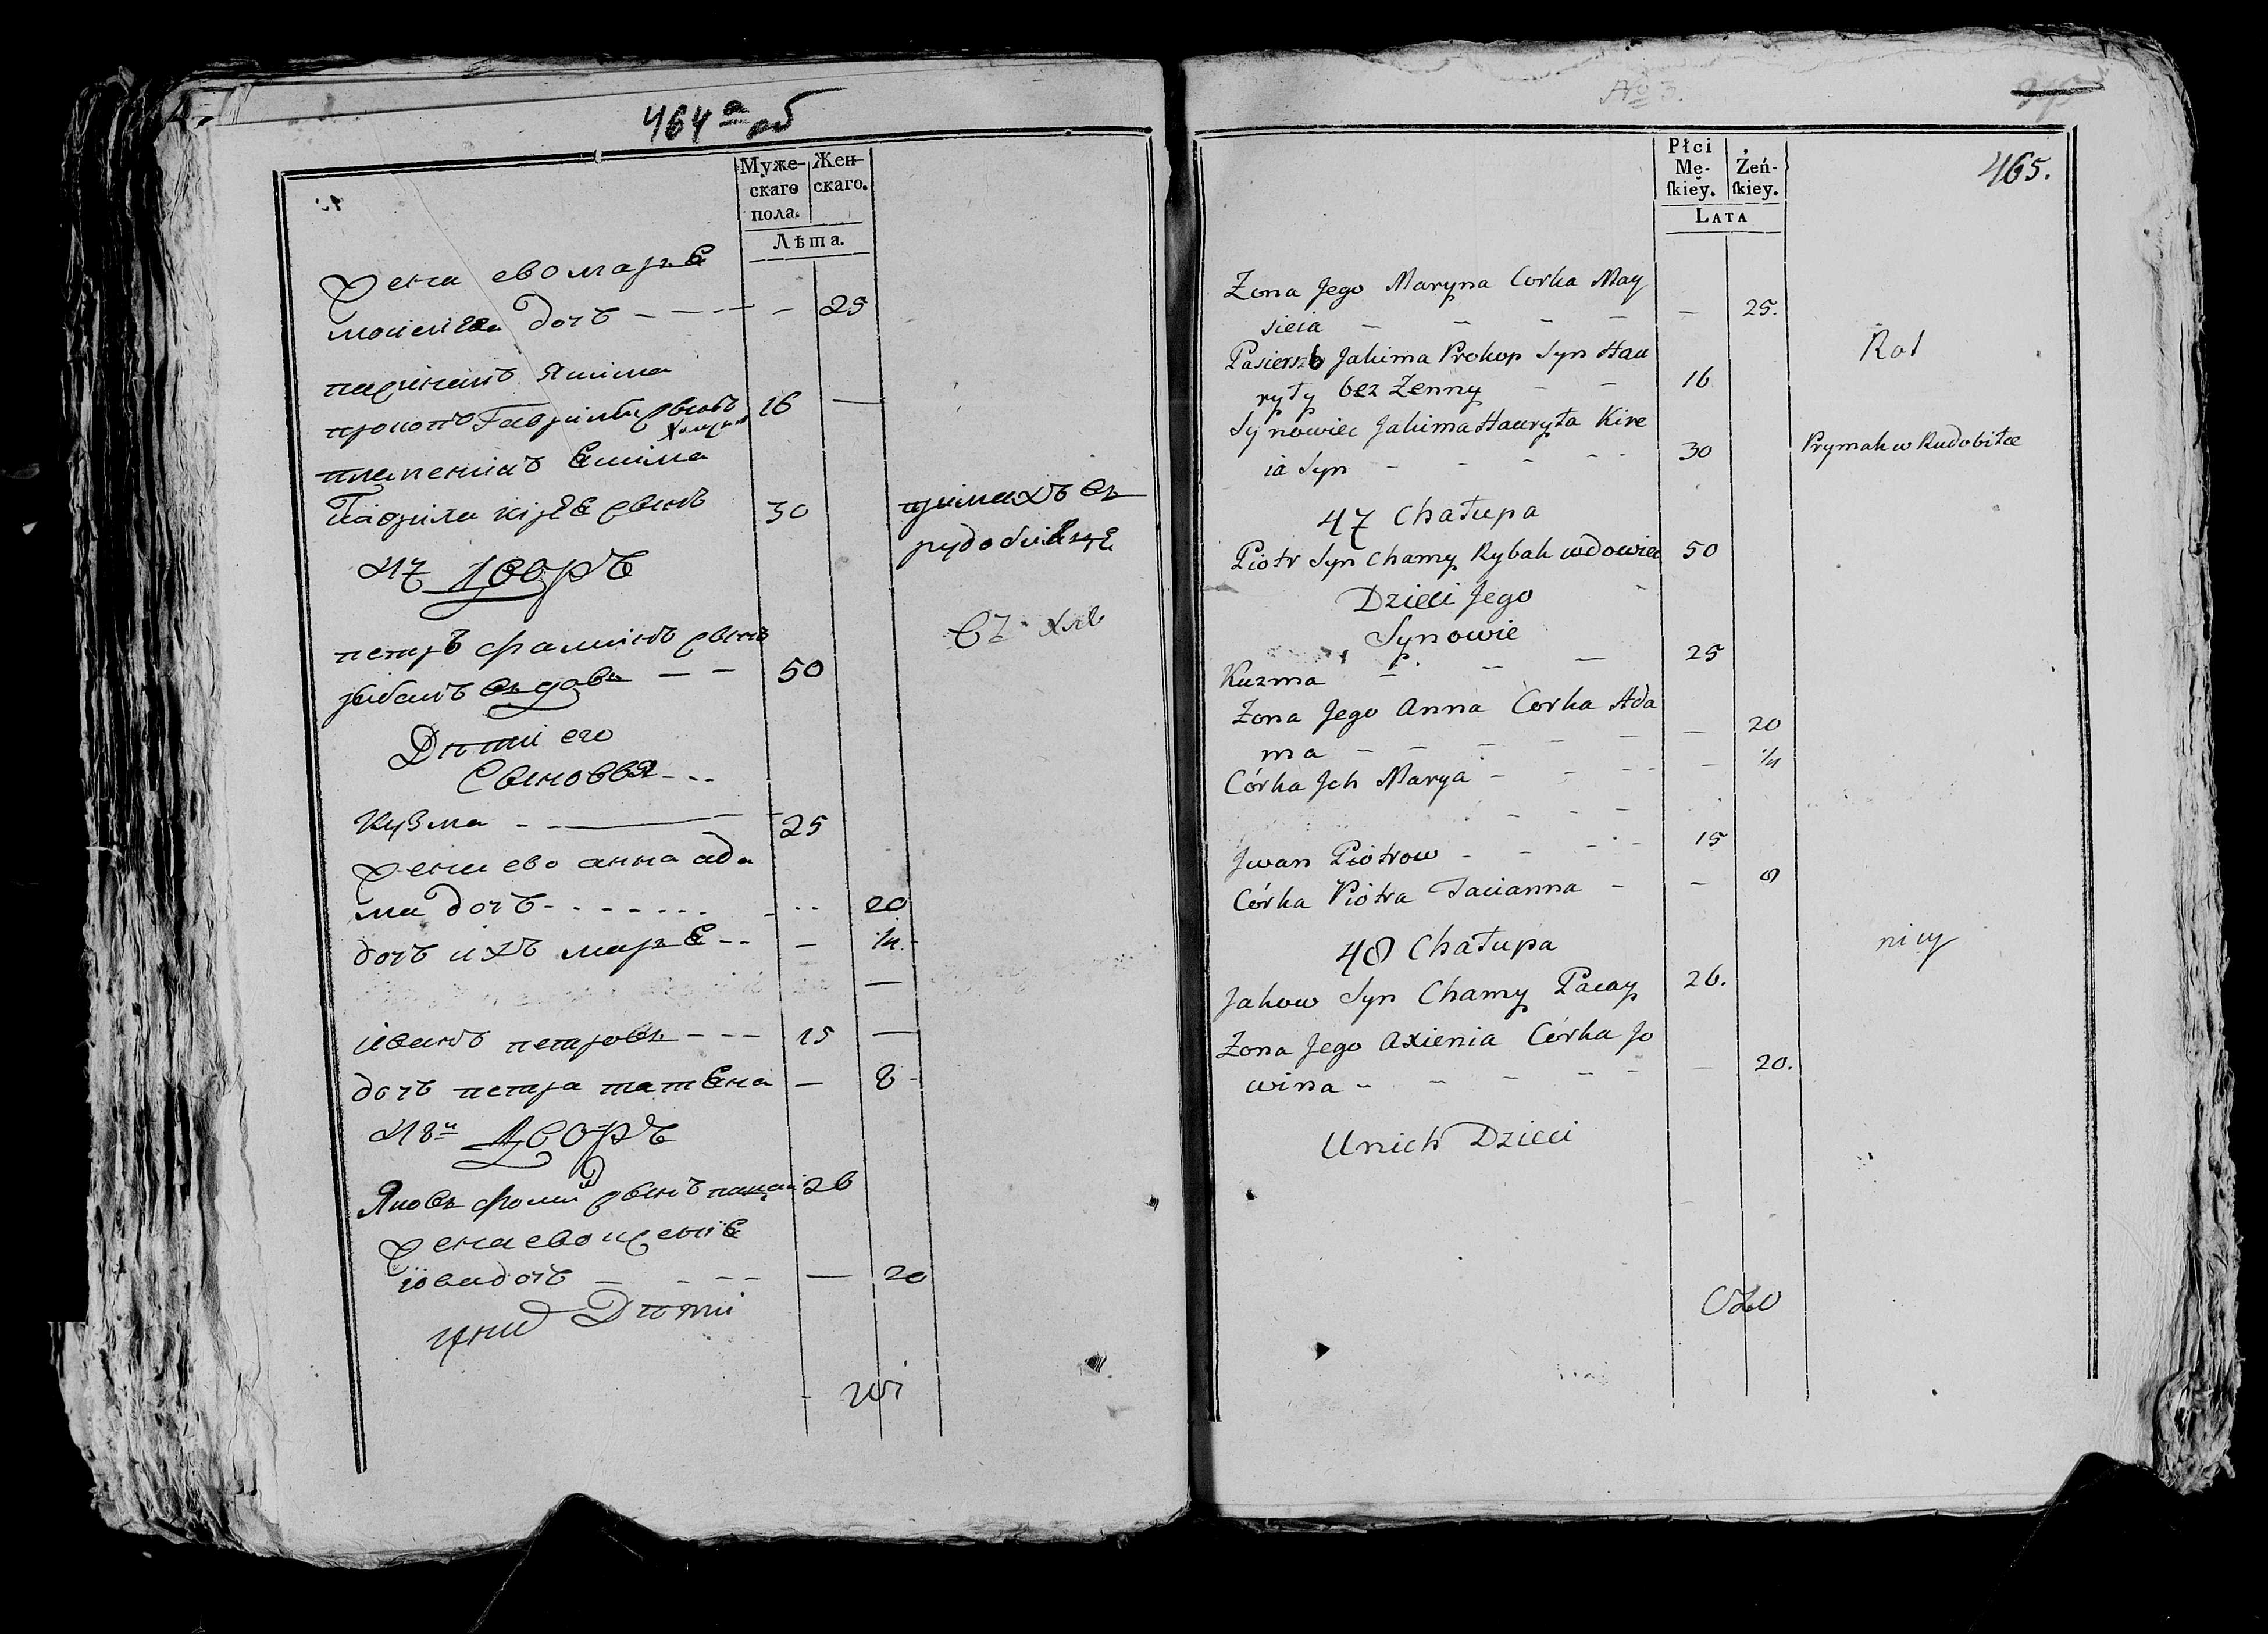 464а об
Муже-
скаго
пола.
Жен-
скаго.
Лѣта.
Жена ево марья
моисеева дочь — — — — 25
пасинакъ Якима
прокопъ Гаврилы сынъ 16 —
племеникъ Якима
Гаврила кірея сынъ 30
примахъ въ
рудобилце
47 Дворъ
петръ фаминъ сынъ
рыбакъ вдовъ — — 50
Дѣти его
Сыновья - - -
Кузма - — 25
Жена ево анна ада
ма дочь - - - - - - - - - 20
дочь ихъ марья - - — 1/4 -
—
иванъ петровъ - - - 15 —
дочь петра татьяна — 8 -
48й Дворъ
Яковъ фомы сынъ пацай 26
Жена ево ксенія
iова дочь — - - - — 20
у нид Дѣти
No 3.
465.
Płci
Mę-
ſkiey.
Żeń-
ſkiey.
LATA
Zona Jego Maryna Corka May
sieia — — — — — 25.
Pasierzb Jakima Prokop Syn Hau
ryły bez Zenny — — 16
Rot
Synowiec Jakima Hauryła Kire
ia Syn - - - - - 30
Prymak w Rudobiłce
47 Chałupa
Piotr Syn Chamy Rybak wdowiec 50
Dzieci Jego
Synowie
Kuzma — — — 25
Zona Jego Anna Corka Ada
ma — — — — — — 20
Córka Jch Marya - - - - — 1/4
- - -
Jwan Piotrow - - - - 15
Córka Piotra Tacianna - — 8
48 Chałupa
Jakow Syn Chamy Pacay 26.
Zona Jego Axienia Córka Jo
wina - - - - - — 20.
Unich Dzieci